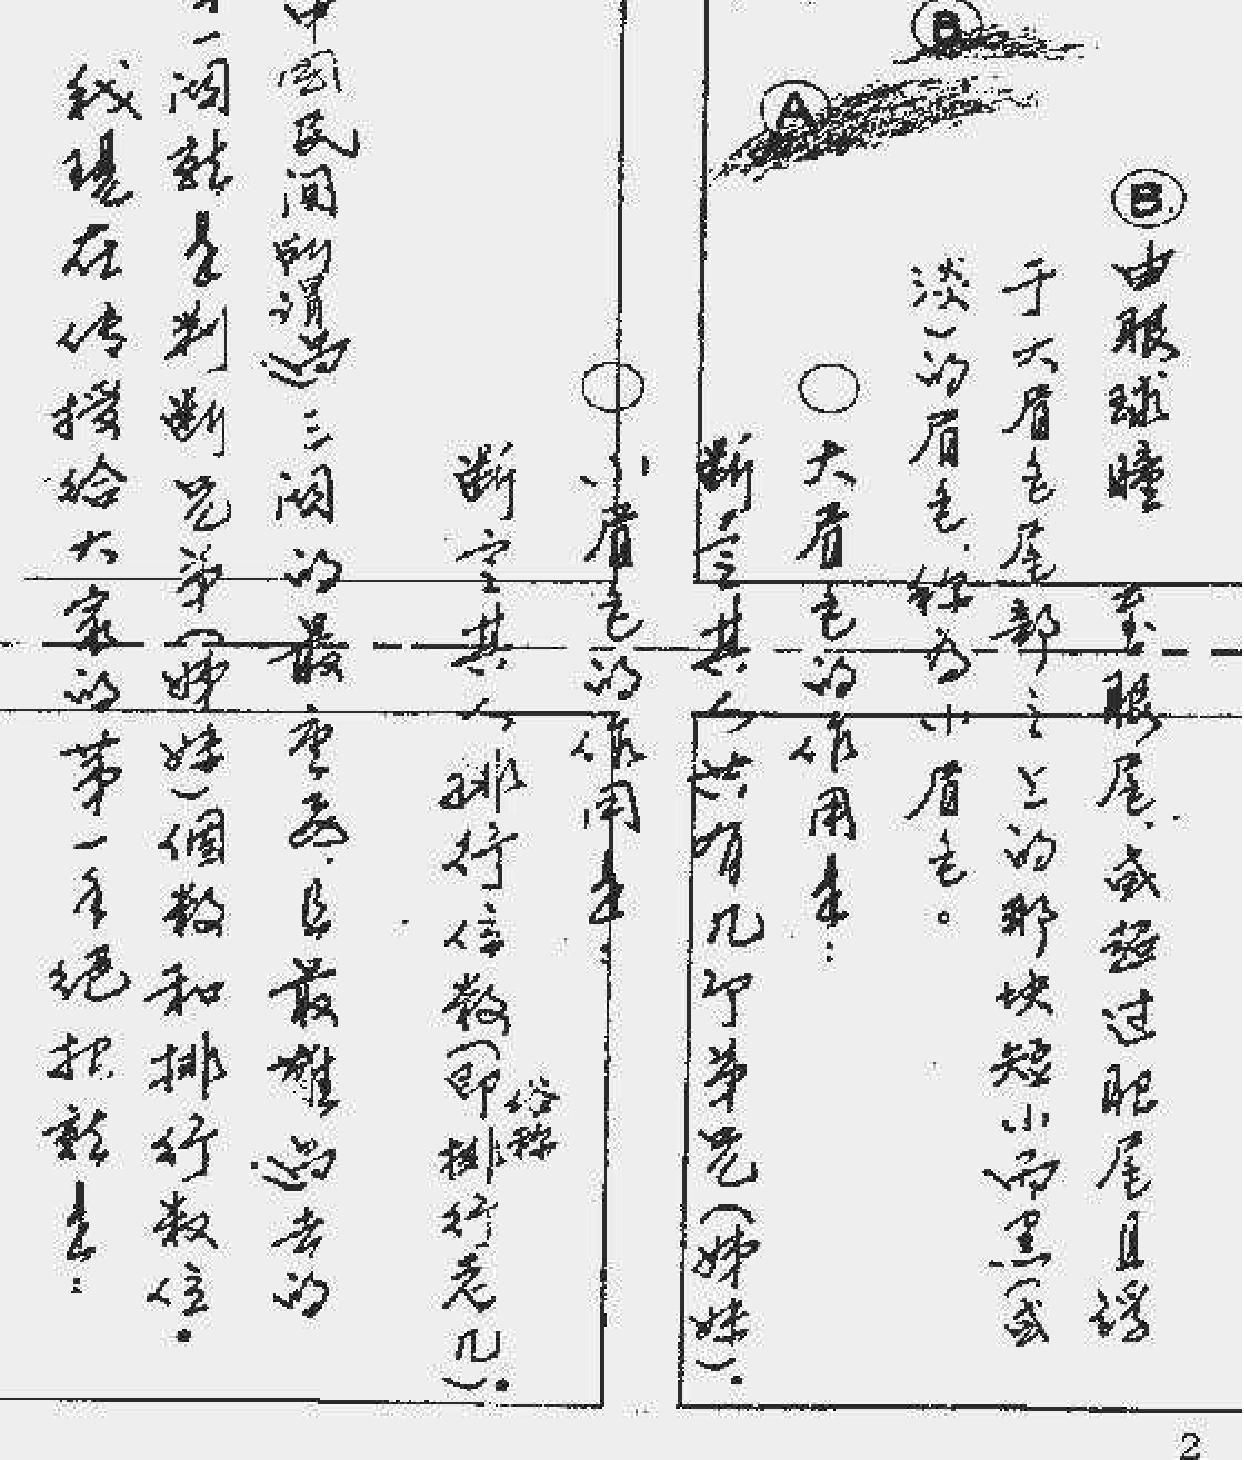 B
A
B 由眼球瞳至眼尾、或超过眼尾且浮
于大眉毛尾部之上的那块短小而黑(或
淡)的眉毛、称为小眉毛。
○大眉毛的作用是:
断定其人共有几个弟兄(姊妹)。
○小眉毛的作用是:
断定其人排行位数(即俗称排行老几)。
中國民间所谓過三関的最重要、且最难過去的
一関就是判断兄弟(姊妹)個数和排行数位。
我现在传授给大家的第一手绝招就是:
2